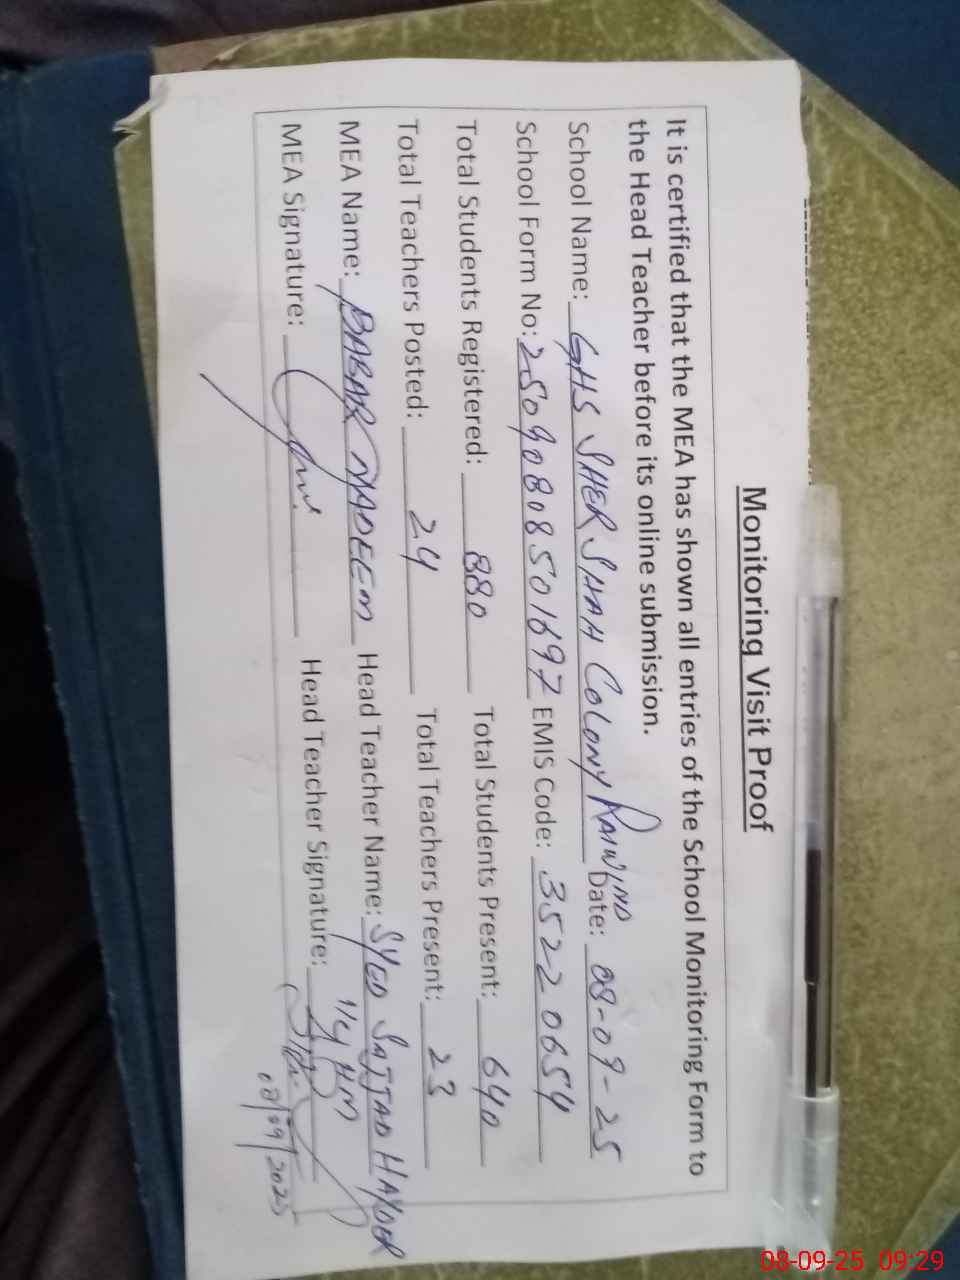 Monitoring Visit Proof
It is certified that the MEA has shown all entries of the School Monitoring Form to
the Head Teacher before its online submission.
School Name: GHS SHER SHAH COLONY RAIWIND Date: 08-09-25
School Form No: 25090808501697 EMIS Code: 35220654
Total Students Registered: 880 Total Students Present: 640
Total Teachers Posted: 24 Total Teachers Present: 23
MEA Name: BABAR NADEEM Head Teacher Name: SYED SAJJAD HAYDER
MEA Signature: Head Teacher Signature:
08/09/2025
08-09-25 09:29